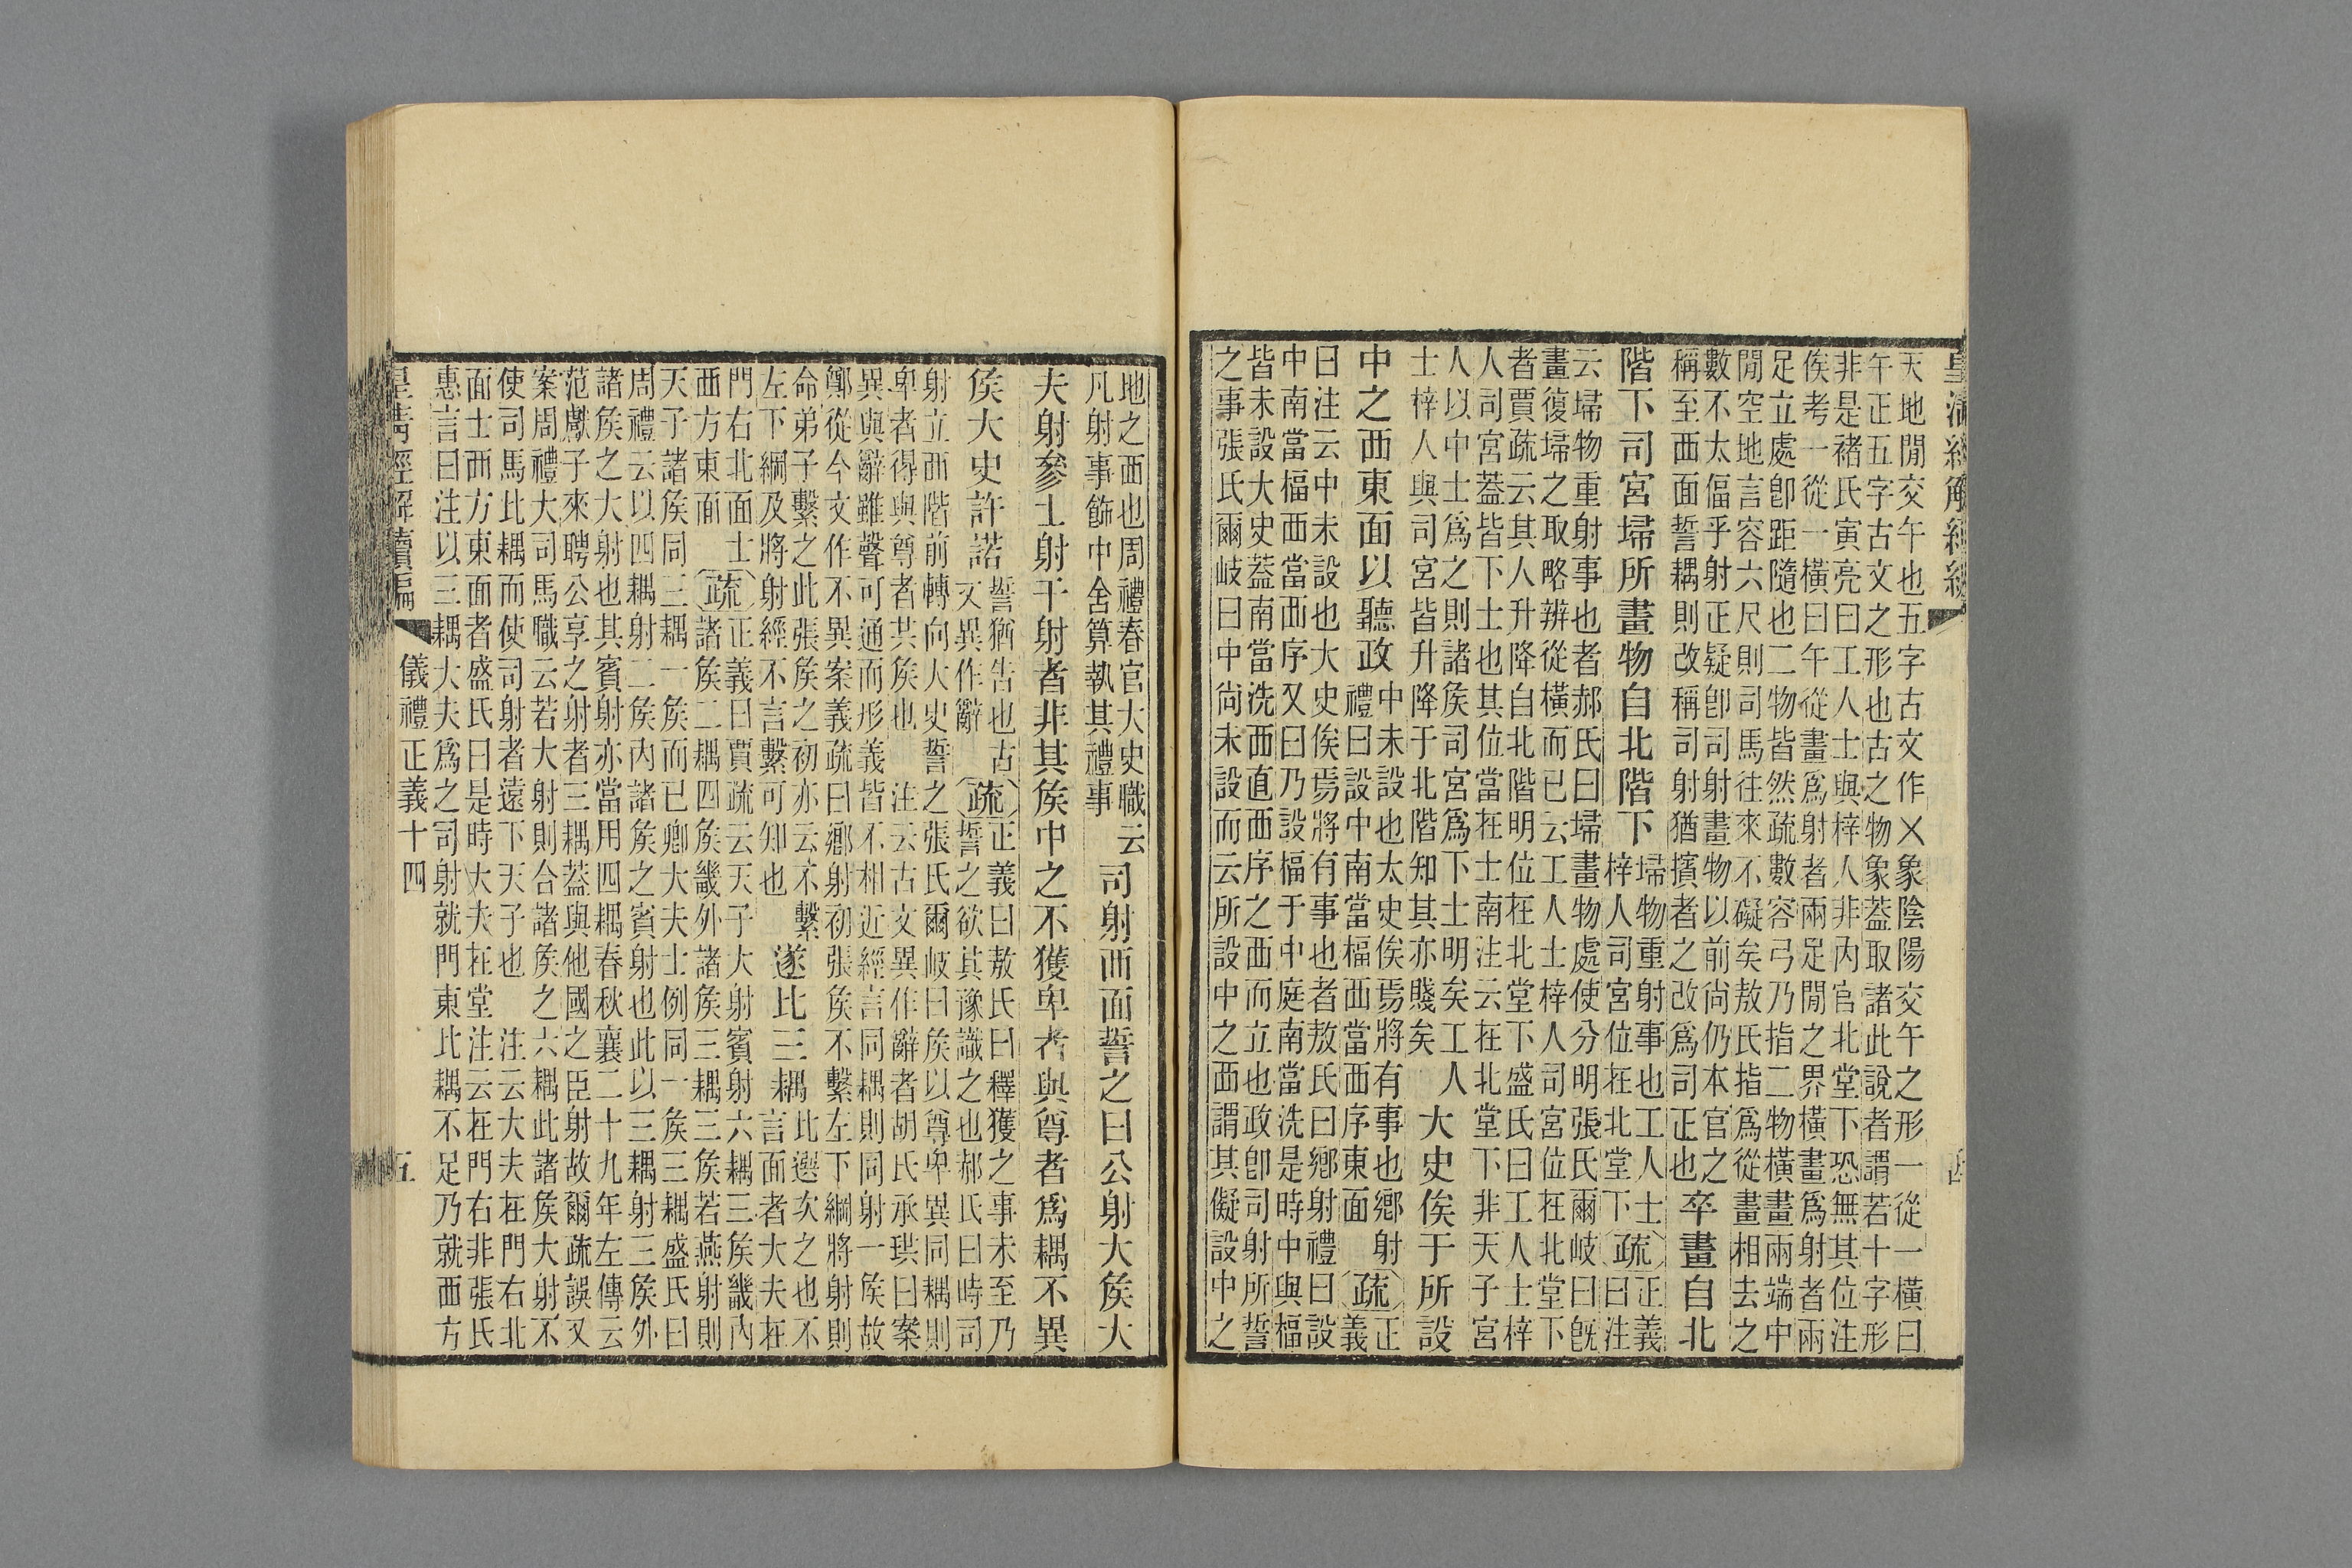 皇清經解續編
天地閒交午也五字古文作㐅象陰陽交午之形一從一橫曰
午正五字古文之形也古之物象蓋取諸此說者謂若十字形
非是褚氏寅亮曰工人士與梓人非內官北堂下恐無其位注
俟考一從一橫曰午從畫爲射者兩足閒之界橫畫爲射者兩
足立處卽距隨也二物皆然疏數容弓乃指二物橫畫兩端中
閒空地言容六尺則司馬往來不礙矣敖氏指爲從畫相去之
數不太偪乎射正疑卽司射畫物以前尙仍本官之
稱至西面誓耦則改稱司射猶擯者之改爲司正也
卒畫自北
階下司宮埽所畫物自北階下
埽物重射事也工人士
梓人司宮位在北堂下
疏
正義
曰注
云埽物重射事也者郝氏曰埽畫物處使分明張氏爾岐曰旣
畫復埽之取略辨從橫而已云工人士梓人司宮位在北堂下
者賈疏云其人升降自北階明位在北堂下盛氏曰工人士梓
人司宮蓋皆下士也其位當在士南注云在北堂下非天子宮
人以中士爲之則諸矦司宮爲下士明矣工人
士梓人與司宮皆升降于北階知其亦賤矣
大史俟于所設
中之西東面以聽政
中未設也太史俟焉將有事也鄕射
禮曰設中南當楅西當西序東面
疏
正
義
曰注云中未設也大史俟焉將有事也者敖氏曰鄕射禮曰設
中南當楅西當西序又曰乃設楅于中庭南當洗是時中與楅
皆未設大史蓋南當洗西直西序之西而立也政卽司射所誓
之事張氏爾岐曰中尙未設而云所設中之西謂其儗設中之
地之西也周禮春官大史職云
凡射事飾中舍算執其禮事
司射西面誓之曰公射大矦大
夫射參士射干射者非其矦中之不獲卑者與尊者爲耦不異
矦大史許諾
誓猶告也古
文異作辭
疏
正義曰敖氏曰釋獲之事未至乃
誓之欲其豫識之也郝氏曰時司
射立西階前轉向大史誓之張氏爾岐曰矦以尊卑異同耦則
卑者得與尊者共矦也　注云古文異作辭者胡氏承珙曰案
異與辭雖聲可通而形義皆不相近經言同耦則同射一矦故
鄭從今文作不異案義疏曰鄕射初張矦不繫左下綱將射則
命弟子繫之此張矦之初亦云不繫
左下綱及將射經不言繫可知也
遂比三耦
比選次之也不
言面者大夫在
門右北面士
西方東面
疏
正義曰賈疏云天子大射賓射六耦三矦畿內
諸矦二耦四矦畿外諸矦三耦三矦若燕射則
天子諸矦同三耦一矦而已卿大夫士例同一矦三耦盛氏曰
周禮云以四耦射二矦內諸矦之賓射也此以三耦射三矦外
諸矦之大射也其賓射亦當用四耦春秋襄二十九年左傳云
范獻子來聘公享之射者三耦蓋與他國之臣射故爾疏誤又
案周禮大司馬職云若大射則合諸矦之六耦此諸矦大射不
使司馬比耦而使司射者遠下天子也　注云大夫在門右北
面士西方東面者盛氏曰是時大夫在堂注云在門右非張氏
惠言曰注以三耦大夫爲之司射就門東比耦不足乃就西方
皇清經解續編
儀禮正義十四
五